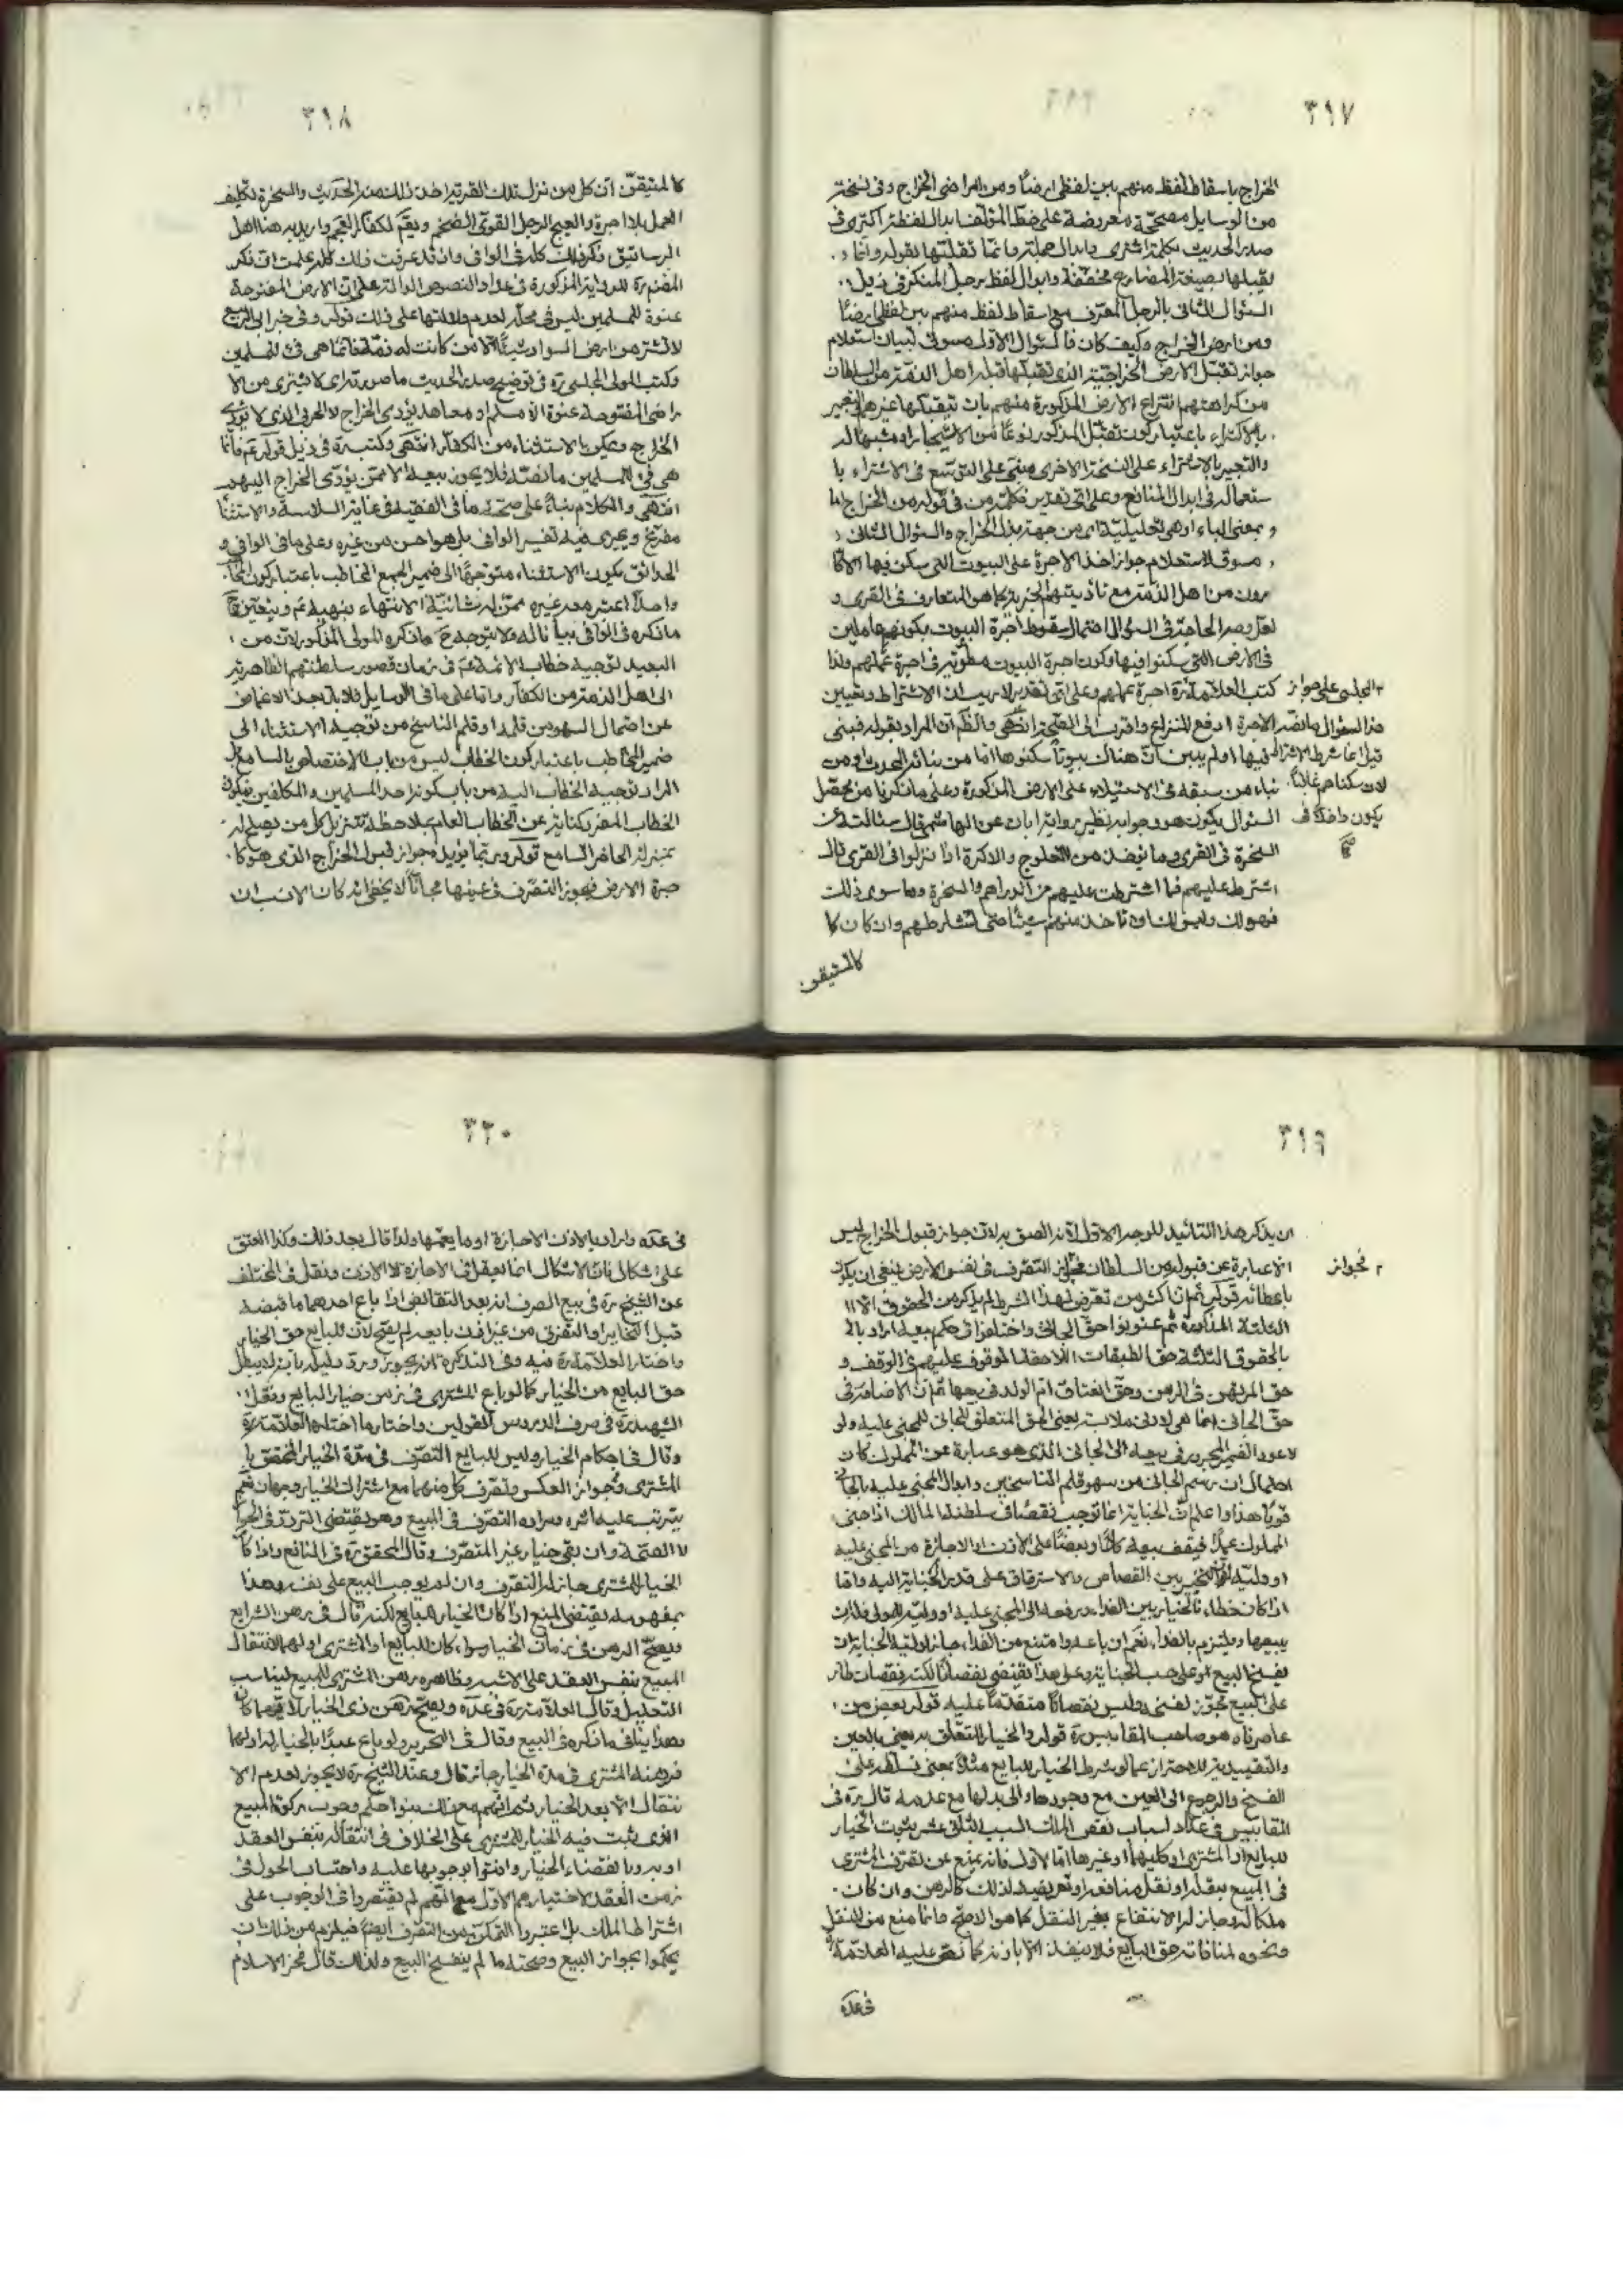 ٣١٧
الخراج باسقاط لفظ منهم بين لفظى ارضا ومن اراضى الخراج وفى نسخة
من الوسايل مصححة معروضة على خط المؤلف ابدال لفظة اكترى فى
صدر الحديث بكلمة اشترى وابدال جملة وانما تقبلتها بقوله وانما
يقبلها بصيغة المضارع مخففة وابدال لفظ رجل المنكر فى ذيل
السئوال الثانى بالرجل المعرف مع اسقاط لفظ منهم بين لفظى ارضا
ومن ارض الخراج وكيف كان فالسئوال الاول مسوق لبيان استعلام
جواز تقبل الارض الخراجية الذى تقبلها قبله اهل الذمة من السلطان
من كراهتهم انتزاع الارض المذكورة منهم بان يتقبلها غيرهم والتعبير
بالاكتراء باعتبار كون تقبل المذكور نوعا من الاستيجار او شبها له
والتعبير بالاشتراء على النسخة الاخرى مبنى على التوسع فى الاشتراء با
ستعماله فى ابدال المنافع وعلى اى تقدير فكلمة من فى قوله من الخراج اما
بمعنى الباء او هى تعليلية اى من جهة بذل الخراج والسؤال الثانى
مسوق لاستعلام جواز اخذ الاجرة على البيوت التى سكن فيها الاكا
رون من اهل الذمة مع تأديتهم الجزية كما هو المتعارف فى القرى و
لعل وجه الحاجة فى السؤال احتمال سقوط اجرة البيوت بكونهم عاملين
فى الارض التى سكنوا فيها وكون اجرة البيوت مطوية فى اجرة عملهم ولذا
كتب العلامة المجلسى على جواز
هذا السؤال ما نصه الاجرة
قيل انما شرط الاشتراط
لان سكناهم غالبا
يكون داخلا فى
صح
اجرة عملهم وعلى اى تقدير لا ريب ان الاشتراط وتعيين
ارفع للنزاع واقرب الى الصحة انتهى والظ ان المراد بقوله فيبنى
فيها اولم يبن ان هناك بيوتا سكنوها اما من بنائه المحدث او من
بناء من سبقه فى الاستيلاء على الارض المذكورة وعلى ما ذكرنا من محصل
السئوال يكون هو وجوابه نظير رواية ابان عن اسماعيل قال سئلته عن
السخرة فى القرى وما يؤخذ من العلوج والاكرة اذا نزلوا فى القرى قال
اشترط عليهم فما اشترطت عليهم من الدراهم والسخرة وما سوى ذلك
فهو لك وليس لك ان تأخذ منهم شيئا حتى تشارطهم وان كان كا
كالمستيقن
٣١٨
كالمتيقن ان كل من نزل تلك القرية اخذ ذلك منه الحديث والسخرة تكليف
العمل بلا اجرة والعلج الرجل القوى الضخم ويقم لكفار العجم واريد به هنا اهل
الرساتيق ذكر ذلك كله فى الوافى وان قد عرفت ذلك كله علمت ان ذكر
المضمرة للرواية المذكورة فى عداد النصوص الدالة على ان الارض المفتوحة
عنوة للمسلمين ليس فى محله لعدم دلالتها على ذلك قوله وفى خبر ابى الربيع
لا تشتر من ارض السواد شيئا الا من كانت له ذمة فانما هى فىء للمسلمين
وكتب المولى المجلسى ره فى توضيح صدر الحديث ما صورته اى لا يشترى من الا
راضى المفتوحة عنوة الا مسلم او معاهد يؤدى الخراج لا الحربى الذى لا يؤدى
الخراج ويكون الاستثناء من الكفار انتهى وكتب ره فى ذيل قوله ع فانما
هى فىء للمسلمين ما نصه فلا يجوز بيعه الا ممن يؤدى الخراج اليهم
انتهى والكلام بناء على صحة ما فى الفقيه فى غاية السلاسة والاستثنا
مفرغ ويجرى فيه تفسير الوافى بل هو احسن من غيره وعلى ما فى الوافى و
الحدائق يكون الاستثناء متوجها الى ضمير الجمع المخاطب باعتبار كون المخا
واحدا اعتبر معه غيره ممن له شأنية الانتهاء بنهيه ع ويتعين ح
ما ذكره فى الوافى بيانا له ولا يتوجه ح ما ذكره المولى المذكور لان من
البعيد توجيه خطاب الائمة ع فى زمان قصور سلطنتهم الظاهرية
الى اهل الذمة من الكفار واما على ما فى الوسايل فلا بد بعد الاغماض
عن احتمال السهو من قلمه او قلم الناسخ من توجيه الاستثناء الى
ضمير المخاطب باعتبار كون الخطاب ليس من باب الاختصاص بالسامع بل
المراد توجيه الخطاب اليه من باب كونه احد المسلمين والمكلفين فيكون
الخطاب المفرد كناية عن الخطاب العام بملاحظة تنزيل كل من يصلح له
بمنزلة الحاضر السامع قوله وربما يؤيده جواز قبول الخراج الذى هو كا
جرة الارض فيجوز التصرف فى عينها مجانا لا يخفى انه كان الانسب ان
٣١٩
ان يذكر هذا التأييد للوجه الاول لانه الصق به لان جواز قبول الخراج ليس
الا عبارة عن قبوله من السلطان فجواز التصرف فى نفس الارض ينبغى ان يكون
فجواز
باعطائه قوله ثم ان اكثر من تعرض لهذا الشرط لم يذكر من الحقوق الا
الثلثة المذكورة ثم عنونوا حق الجانى واختلفوا فى حكم بيعه اراد با
بالحقوق الثلثة حق الطبقات اللاحقة للموقوف عليهم فى الوقف و
حق المرتهن فى الرهن وحق انعتاق ام الولد فى بيعها ثم ان الاضافة فى
حق الجانى انما هى لادنى ملابسة يعنى الحق المتعلق بالجانى للمجنى عليه ولو
لا عود الضمير المجرور فى بيعه الى الجانى الذى هو عبارة عن المملوك كان
احتمال ان رسم الجانى من سهو قلم الناسخين وابدال المجنى عليه بالجانى
قويا هذا واعلم ان الجناية انما توجب نقصا فى سلطنة المالك اذا جنى
المملوك عمدا فيقف بيعه كلا وبعضا على الاذن او الاجازة من المجنى عليه
او وليه للتخيير بين القصاص والاسترقاق على قدر الجناية اليه واما
اذا كان خطاء فالخيار بين الفداء ودفعه الى المجنى عليه او وليه للمولى فله ان
يبيعها ويلتزم بالفداء نعم ان باعه وامتنع من الفداء جاز لولى الجناية ان
يفسخ البيع لو على حسب الجناية وهذا يقتضى نقصانا لكنه نقصان طار
على البيع مجوز لفسخه وليس نقصانا متقدما عليه قوله بعض من
عاصرناه هو صاحب المقابيس ره قوله والخيار المتعلق به يعنى بالعين
والتقييد به للاحتراز عما لو شرط الخيار للبايع مثلا بمعنى تسلطه على
الفسخ والرجوع الى العين مع وجودها والى بدلها مع عدمه قال ره فى
المقابيس فى عداد اسباب نقص الملك السبب الثانى عشر ثبوت الخيار
للبايع او المشترى او كليهما او غيرها اما الاول فانه يمنع عن تصرف المشترى
فى المبيع بنقله او نقل منافعه او تعريضه لذلك كالرهن وان كان
ملكا له وجاز له الانتفاع بغير النقل كما هو الاصح وانما منع من النقل
ونحوه لمنافاته حق البايع فلا ينفذ الا باذنه كما نص عليه العلامة ره
فى عده
٣٢٠
فى عده واراد بالاذن الاجازة او ما يعمها ولذا قال بعد ذلك وكذا العتق
على اشكال فان الاشكال انما يعقل فى الاجازة لا الاذن ونقل فى المختلف
عن الشيخ ره فى بيع الصرف انه بعد التقابض اذا باع احدهما ما قبضه
قبل التخاير او التفرق من غير اذن بايعه لم يصح لان للبايع حق الخيار
واختار العلامة ره فيه وفى التذكرة انه يجوز ورد دليله بانه لا يبطل
حق البايع من الخيار كما لو باع المشترى فى زمن خيار البايع ونقل
الشهيد ره فى صرف الدروس القولين واختار ما اختاره العلامة ره
وقال فى احكام الخيار وليس للبايع التصرف فى مدة الخيار المختص با
المشترى وفى جواز العكس وتصرف كل منهما مع اشتراك الخيار وجهان نعم
يترتب عليه اثره ومراده التصرف فى المبيع وهو يقتضى التردد فى الجواز
لا الصحة وان بقى خيار غير المتصرف وقال المحقق ره فى النافع واذا كان
الخيار للمشترى جاز له التصرف وان لم يوجب البيع على نفسه وهذا
بمفهومه يقتضى المنع اذا كان الخيار للبايع لكنه قال فى رهن الشرايع
ويصح الرهن فى زمان الخيار سواء كان للبايع او للمشترى او لهما لانتقال
المبيع بنفس العقد على الاشبه وظاهره رهن المشترى للمبيع ليناسب
التعليل وقال العلامة ره فى عده ويصح رهن ذى الخيار لا قويما كان
وهذا ينافى ما ذكره فى البيع وقال فى التحرير ولو باع عبدا بالخيار له او لهما
فرهنه المشترى فى مدة الخيار جاز قال وعند الشيخ ره لا يجوز لعدم الا
نتقال الا بعد الخيار ثم انهم مع ذلك بنوا حكم وجوب زكوة المبيع
الذى يثبت فيه الخيار للمشترى على الخلاف فى انتقاله بنفس العقد
او به وبانقضاء الخيار وافتوا بوجوبها عليه واحتساب الحول فى
زمن العقد لاختيارهم الاول مع انهم لم يقتصروا فى الوجوب على
اشتراط الملك بل اعتبروا التمكن من التصرف ايضا فيلزم من ذلك ان
يحكموا بجواز البيع وصحته ما لم ينفسخ البيع ولذلك قال فخر الاسلام